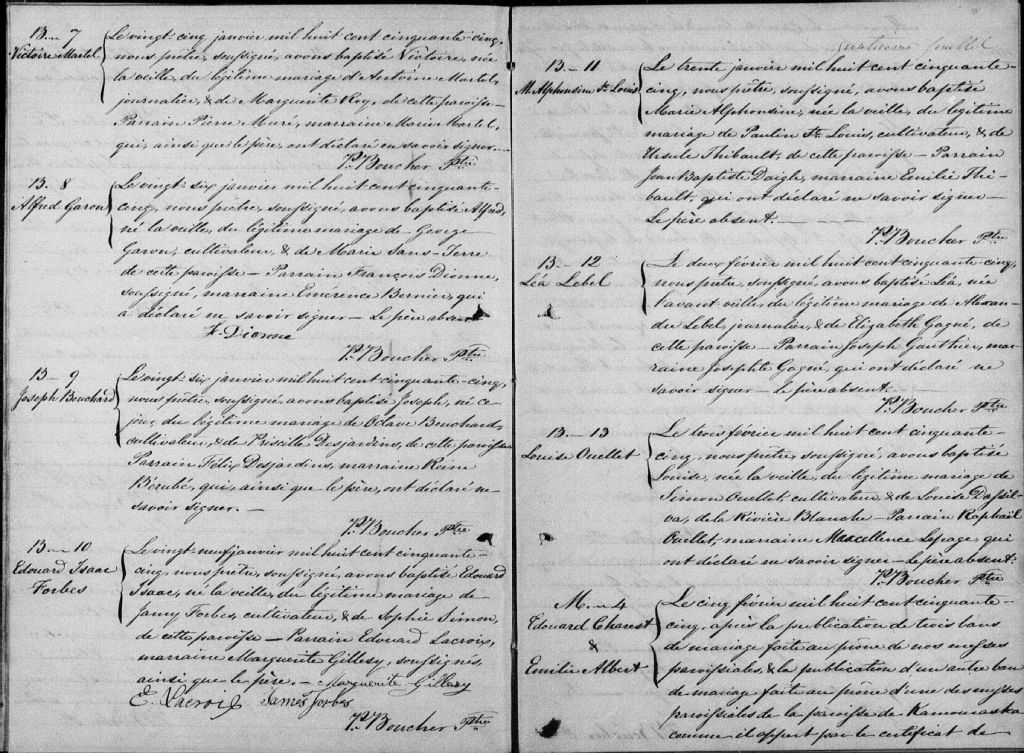 B. — 7
Victoire Martel
Le vingt-cinq janvier mil huit cent cinquante-cinq,
nous prêtre, soussigné, avons baptisé Victoire, née
la veille, du légitime mariage d'Antoine Martel,
journalier, & de Marguerite Roy, de cette paroisse —
Parrain Pierre Muré, marraine Marie Martel,
qui, ainsi que le père, ont déclaré ne savoir signer. —
P. Boucher Ptre
B. 8
Alfred Garon
Le vingt-six janvier mil huit cent cinquante-
cinq, nous prêtre, soussigné, avons baptisé Alfred,
né la veille, du légitime mariage de George
Garon, cultivateur, & de Marie Sans-Terre
de cette paroisse — Parrain François Dionne,
soussigné, marraine Emérence Bernier, qui
a déclaré ne savoir signer — Le père absent
F. Dionne
P. Boucher Ptre
B — 9
Joseph Bouchard
Le vingt-six janvier mil huit cent cinquante-cinq,
nous prêtre, soussigné, avons baptisé Joseph, né ce
jour, du légitime mariage de Octave Bouchard,
cultivateur, & de Priscille Desjardins, de cette paroisse
Parrain Félix Desjardins, marraine Reine
Bérubé, qui, ainsi que le père, ont déclaré ne
savoir signer. —
P. Boucher Ptre
B — 10
Edouard Isaac
Forbes
Le vingt-neuf janvier mil huit cent cinquante-
cinq, nous prêtre, soussigné, avons baptisé Edouard
Isaac, né la veille, du légitime mariage de
Jammy Forbes, cultivateur, & de Sophie Simon,
de cette paroisse — Parrain Edouard Lacroix,
marraine Marguerite Gillesy, soussignés,
ainsi que le père. — Marguerite Gillesy
E. Lacroix James Forbes
P. Boucher Ptre
feuillet
B — 11
M. Alphonsine St. Louis
Le trente janvier mil huit cent cinquante-
cinq, nous prêtre, soussigné, avons baptisé
Marie Alphonsine, née la veille, du légitime
mariage de Paulin St. Louis, cultivateur, & de
Ursule Thibault, de cette paroisse — Parrain
Jean Baptiste Daigle, marraine Emilie Thi-
bault, qui ont déclaré ne savoir signer —
Le père absent. —
P. Boucher Ptre
B. — 12
Léa Lebel
Le deux février mil huit cent cinquante-cinq,
nous prêtre, soussigné, avons baptisé Léa, née
l'avant-veille, du légitime mariage de Mexan-
dre Lebel, journalier, & de Elizabeth Gagné, de
cette paroisse — Parrain Joseph Gauthier, mar-
raine Josephte Gagné, qui ont déclaré ne
savoir signer — le père absent. —
P. Boucher Ptre
B. — 13
Louise Ouellet
Le trois février mil huit cent cinquante-
cinq, nous prêtre, soussigné, avons baptisé
Louise, née la veille, du légitime mariage de
Simon Ouellet, cultivateur & de Louise Dassil-
va, de la Rivière Blanche — Parrain Raphaël
Ouellet, marraine Maxcellence Lepage, qui
ont déclaré ne savoir signer — Le père absent.
P. Boucher Ptre
M. — 4
Edouard Charest
&
Emilie Albert
Le cinq février mil huit cent cinquante-
cinq, après la publication de trois bans
de mariage faite au prône de nos messes
paroissiales, & la publication d'un autre ban
de mariage faite au prône d'une des messes
paroissiales de la paroisse de Kamouraska
comme il appert par le certificat de